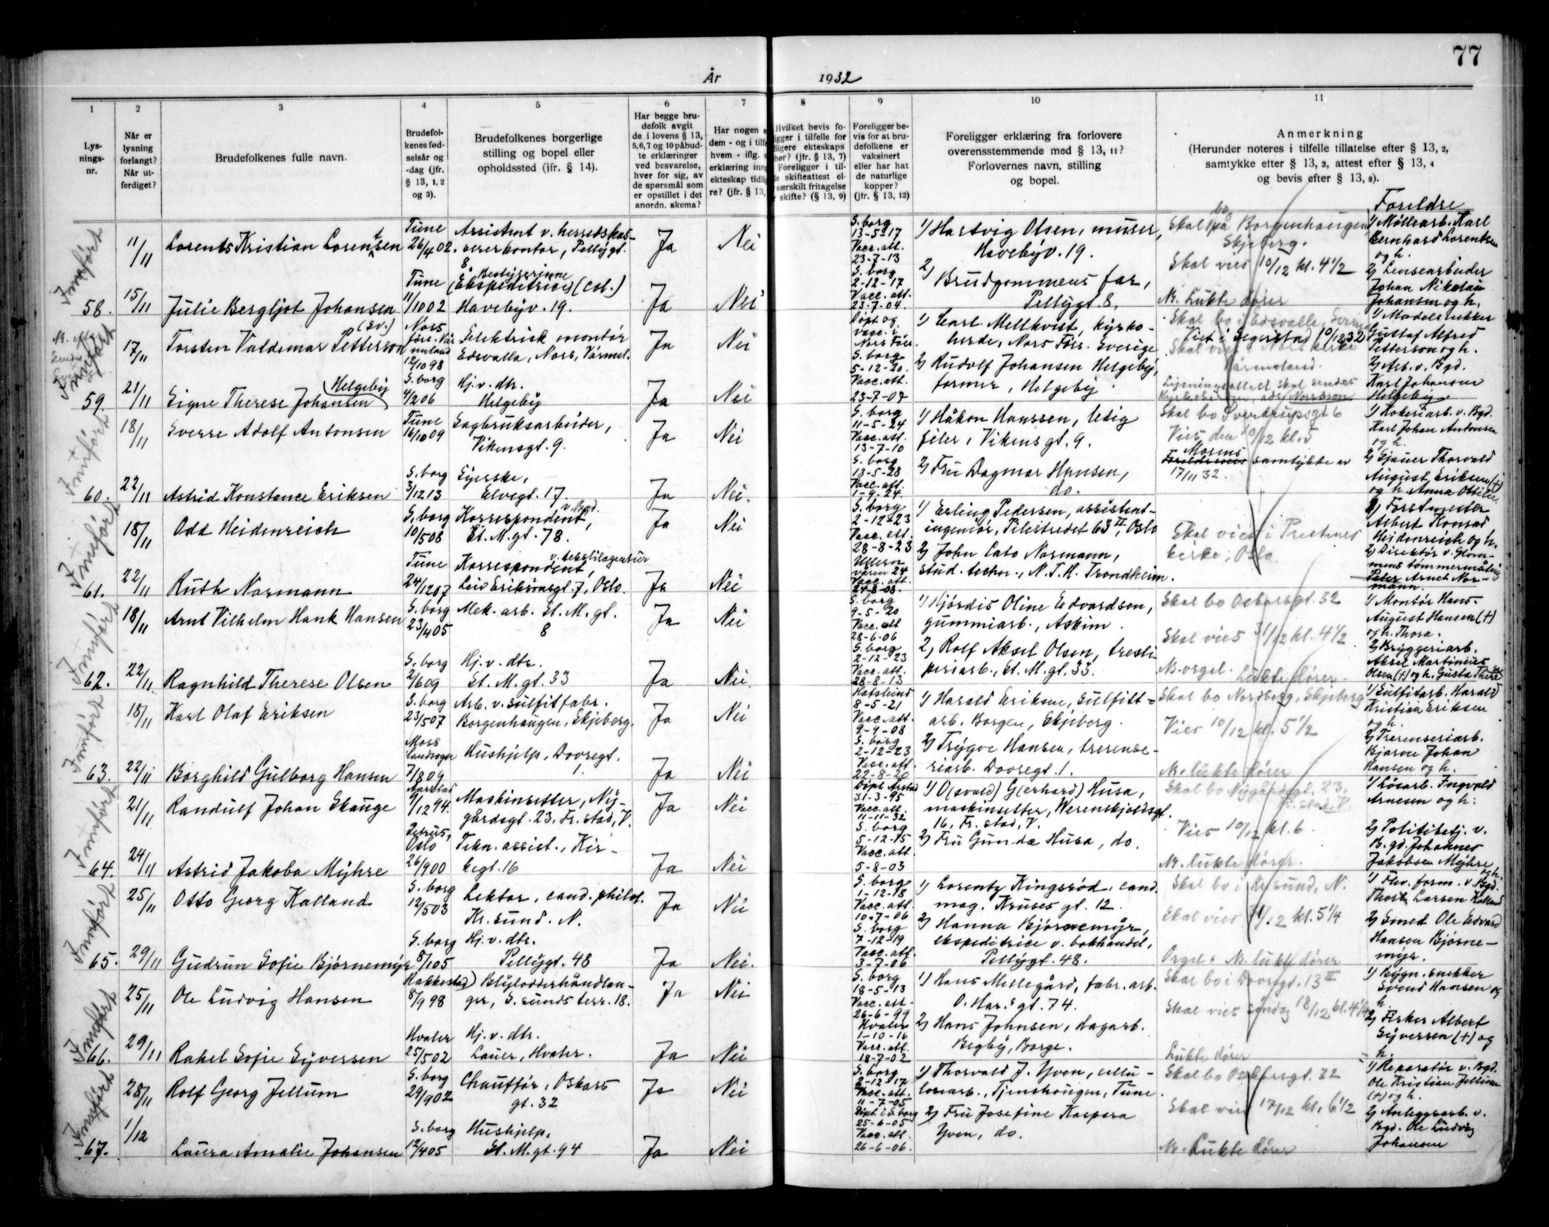 77
År 1932
1 2 3 4 5 6 7 8 9 10 11
Lys-
nings-
nr.
Når er
lysning
forlangt?
Når ut-
ferdiget?
Brudefolkenes fulle navn.
Brudefol-
kenes fød-
selsår og
-dag (jfr.
§ 13, 1, 2
og 3).
Brudefolkenes borgerlige
stilling og bopel eller
opholdssted (jfr. § 14).
Har begge bru-
defolk avgit
de i lovens § 13,
5, 6, 7 og 10 påbud-
te erklæringer
ved besvarelse,
hver for sig, av
de spørsmål som
er opstillet i det
anordn. skema?
Har nogen
dem - og i tilfe
hvem - iflg.
erklæring inng
ekteskap tidlig
re? (jfr. § 13,
Hvilket bevis fo-
ligger i tilfelle for
ligere ekteskaps
her? (jfr. § 13, 7)
Foreligger i til-
skifteattest el-
særskilt fritagelse
skifte? (§ 13, 9)
Foreligger be-
vis for at bru-
defolkene er
vaksinert
eller har hat
de naturlige
kopper?
(jfr. § 13, 12)
Foreligger erklæring fra forlovere
overensstemmende med § 13, 11?
Forlovernes navn, stilling
og bopel.
Anmerkning
(Herunder noteres i tilfelle tillatelse efter § 13, 2,
samtykke efter § 13, 3, attest efter § 13, 4
og bevis efter § 13, 8).
Foreldre
Innført
11/11 Lorents Kristian Lorentsen
Tune 26/4 02
Assistent v. herredskas-
sererkontor, Pellygt.
8.
Ja Nei
S. borg
13-5-17
Vacc. att.
23-7-13
1) Hartvig Olsen, murer,
Havebyv. 19.
Skal bo på Borgenhaugen
Skjeberg.
Skal vies 10/12 kl. 4 1/2
1) Møllearb. Karl
Bernhard Lorentsen
og h.
58. 15/11 Julie Bergljot Johansen
Tune 11/10 02
Bestyrerinne
(Ekspeditrice) (Col.)
Havebyv. 19.
Ja Nei
S. borg
2-12-17
Vacc. att.
23-7-04
2) Brudgommens far,
Pellygt 8.
M. Lukte dører
2) Lensearbeider
Johan Nikolai
Johansen og h.
Innført
17/11 Torsten Valdemar Petterson
(sv.)
12/10 98
Elektrisk montør
Edsvalla, Nors, Värmel.
Ja Nei
Døpt og
vacc. i
Nors Förs.
1) Carl Mellkvist, kyrko-
herde, Nors Förs. Sverige
Skal bo i Edsvalla,
10/12 32
Gustaf Alfred
Petterson og h.
59. 21/11 Signe Therese Johansen (Helgeby)
S. borg
4/2 06
Hj. v. dtr.
Helgeby
Ja Nei
S. borg
5-12-20
Vacc. att.
23-7-07
2) Rudolf Johansen Helgeby,
former, Helgeby.
Lysningsattest skal sendes
2) Arb. v. Bgd.
Karl Johansen
Helgeby
Innført
18/11 Sverre Adolf Antonsen
Tune 14/10 09
Sagbruksarbeider,
Vikensgt. 9.
Ja Nei
S. borg
11-5-24
Vacc. att.
13-7-10
1) Håkon Hanssen, ledig
feier, Vikensgt. 9.
Skal bo Sverdrupsgt 6
Vies den 10/12 kl. 5
1) Kokeriarb. v. Bgd.
Karl Johan Antonsen
og h.
60. 22/11 Astrid Konstance Eriksen
S. borg
3/12 13
Syerske,
Elvegt. 17.
Ja Nei.
S. borg
13-5-28
Vacc. att.
1-9-24.
2) Fru Dagmar Hansen,
do.
Morens
Foreldrenes samtykke av
17/11 32.
2) Sjauer Thorvald
August Eriksen (+)
og h. Anna Ottilie
Innført
18/11 Odd Heidenreich
S. borg
10/5 08
Korrespondent, v. Bgd.
St. M. gt. 78.
Ja Nei
S. borg
2-12-23
Vacc. att.
28-8-23
1) Erling Pedersen, assistent-
ingeniør, Pilestredet 63 II, Oslo
Skal vies i Prestenes
kirke, Oslo.
1) Forstmester
Albert Konrad
Heidenreich og h.
61. 22/11 Ruth Normann
Tune 24/12 07
Korrespondent v. tekstilagentur
Leiv Eriksonsgt. 7, Oslo.
Ja Nei
Ullern
våren 24
Vacc. att.
24-8-08.
2) John Cato Normann,
stud. techn., N.T.H. Trondheim.
2) Direktør v. Glom-
mens tømmermåling
Peter Arnet Nor-
mann
Innført
18/11 Arnt Vilhelm Hank Hansen
S. borg
23/4 05
Mek. arb. St. M. gt.
8
Ja Nei
S. borg
9-5-20
Vacc. att
28-6-06
1) Hjørdis Oline Edvardsen,
gummiarb., Askim.
Skal bo Oskarsgt. 32
Skal vies 31/12 kl. 4 1/2
1) Montør Hans
August Hansen (+)
og h. Thora.
62. 22/11 Ragnhild Therese Olsen
S. borg
2/6 09
Hj. v. dtr.
St. M. gt. 33
Ja Nei.
S. borg
2-12-23
Vacc. att.
28-8-13
2) Rolf Aksel Olsen, tresli-
periarb., St. M. gt. 33.
M. orgel. Lukte dører.
2) Bryggeriarb.
Aksel Martinius
Olsen (+) og h. Gusta
Innført
18/11 Karl Olaf Eriksen
S. borg
23/5 07
Arb. v. sulfitfabr.
Borgenhaugen, Skjeberg.
Ja Nei
8-5-21
Vacc. att.
9-9-08
1) Harald Eriksen, Sulfitt-
arb. Borgen, Skjeberg.
Skal bo Nordberg, Skjeberg
Vies 10/12 kl. 5 1/2
1) Sulfitarb. Harald
Kristian Eriksen
og h.
63. 22/11 Borghild Gulborg Hansen
7/8 09
Hushjelp, Dovregt.
1.
Ja Nei
S. borg
2-12-23
Vacc. att.
22-8-20
2) Trygve Hansen, trerense-
riarb. Dovregt. 1.
M. lukte dører
2) Trerenseriarb.
Bjarne Johan
Hansen og h.
Innført
21/11 Randulf Johan Skauge
9/12 94
Maskinsetter, Ny-
gårdsgt. 23. Fr. stad, V.
Ja Nei
31-3-95
Vacc. att.
11-11-32
1) O(svald) G(erhard) Husa,
maskinsetter, Werenskjoldsgt.
16, Fr. stad, V.
Skal bo Nygårdsgt. 23,
Fr. stad, V.
Vies 10/12 kl. 6
1) Løsarb. Ingvald
Arnesen og h.
64. 24/11 Astrid Jakoba Myhre
Petrus,
Oslo
26/9 00
Tekn. assist., Kir-
kegt. 16
Ja Nei
S. borg
5-12-15
Vacc. att.
5-8-03
2) Fru Gunda Husa, do.
M. lukte dører.
2) Politibetj. v.
B. gd. Johannes
Jakobsen Myhre,
og h.
Innført
25/11 Otto Georg Kalland
S. borg
12/5 03
Lektor, cand. philol.
Kr. sund. N.
Ja Nei
S. borg
1-12-18
Vacc. att.
10-7-06
1) Lorentz Kingsrød, cand.
mag. Kruses gt. 12.
Skal bo i Kr. sund, N.
Skal vies 31/12 kl. 5 1/4
Larsen Kalland
65. 29/11 Gudrun Sofie Bjørnemyr
S. borg
8/1 05
Hj. v. dtr.
Pellygt. 48
Ja Nei.
S. borg
7-12-19
Vacc. att.
3-7-06
2) Hanna Bjørnemyr,
ekspeditrice v. bokhandel,
Pellygt. 48.
Orgel + M. lukte dører
2) Smed Ole Edvard
Hansen Bjørne-
myr.
Innført
25/11 Ole Ludvig Hansen
Rakkestad
5/9 98
Blylodderhåndlan-
ger, S. sunds terr. 18.
Ja Nei
S. borg
18-5-13
Vacc. att.
26-6-99
1) Hans Mellegård, fabr. arb.
O. Har.s gt. 74.
Skal bo i Dovregt. 13 II
Skal vies søndag 18/12 kl. 4 1/4
1) Bygn. snekker
Svend Hansen og
h.
66. 29/11 Rakel Sofie Syversen
Hvaler
25/5 02
Hj. v. dtr.
Lauer, Hvaler.
Ja Nei
Hvaler
1-10-16
Vacc. att.
18-7-02
2) Hans Johnsen, dagarb.
Begby, Borge.
Lukte dører
2) Fisker Albert
Syversen (+) og
h.
Innført
28/11 Rolf Georg Jellum
S. borg
29/9 02
Chauffør, Oskars
gt. 32
Ja Nei
S. borg
2-12-17
Vacc. att.
11-7-05
1) Thorvald J. Yven, cellu-
losearb., Tjernhaugen, Tune.
Skal bo Oskarsgt. 32
Skal vies 17/12 kl. 6 1/2
1) Reparatør v. Bgd.
Ole Kristian Jellum
(+) og h.
67. 1/12 Laura Amalie Johansen
S. borg
12/4 05
Hushjelp,
St. M. gt. 94
Ja Nei
Døpt i S. borg
25-6-05
Vacc. att.
26-6-06.
2) Fru Josefine Kaspara
Yven, do.
M. Lukte dører
2) Anleggsarb. v.
Bgd. Ole Ludvig
Johansen